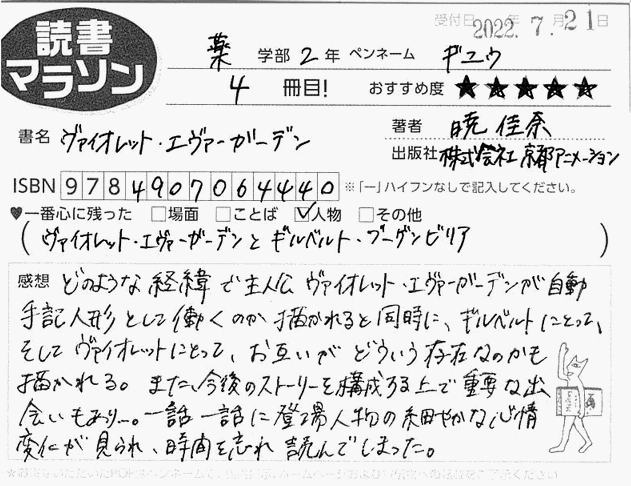 受付日 2022年 7月 21日
読書
マラソン
薬 学部 2 年 ペンネーム ギユウ
4 冊目! おすすめ度 ★★★★★
書名 ヴァイオレット・エヴァーガーデン
著者 暁 佳奈
出版社 株式会社 京都アニメーション
ISBN 9784907064440 ※「ー」ハイフンなしで記入してください。
♥一番心に残った □場面 □ことば ☑人物 □その他
(ヴァイオレット・エヴァーガーデンとギルベルト・ブーゲンビリア)
感想 どのような経緯で主人公 ヴァイオレット・エヴァーガーデンが自動
手記人形として働くのか描かれると同時に、ギルベルトにとって、
そしてヴァイオレットにとって、お互いがどういう存在なのかも
描かれる。また、今後のストーリーを構成する上で重要な出
会いもあり…。一話一話に登場人物の細やかな心情
変化が見られ、時間を忘れ読んでしまった。